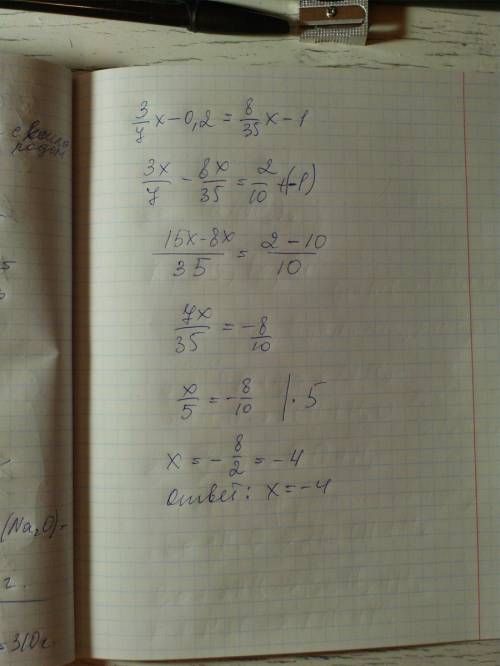 3/7 x - 0,2 = 8/35 x - 1
3x/7 - 8x/35 = 2/10 + (-1)
15x - 8x/35 = 2 - 10/10
7x/35 = -8/10
x/5 = -8/10 | · 5
x = -8/2 = -4
ответ: x = -4
(Na₂O) =
г.
= 310 г.